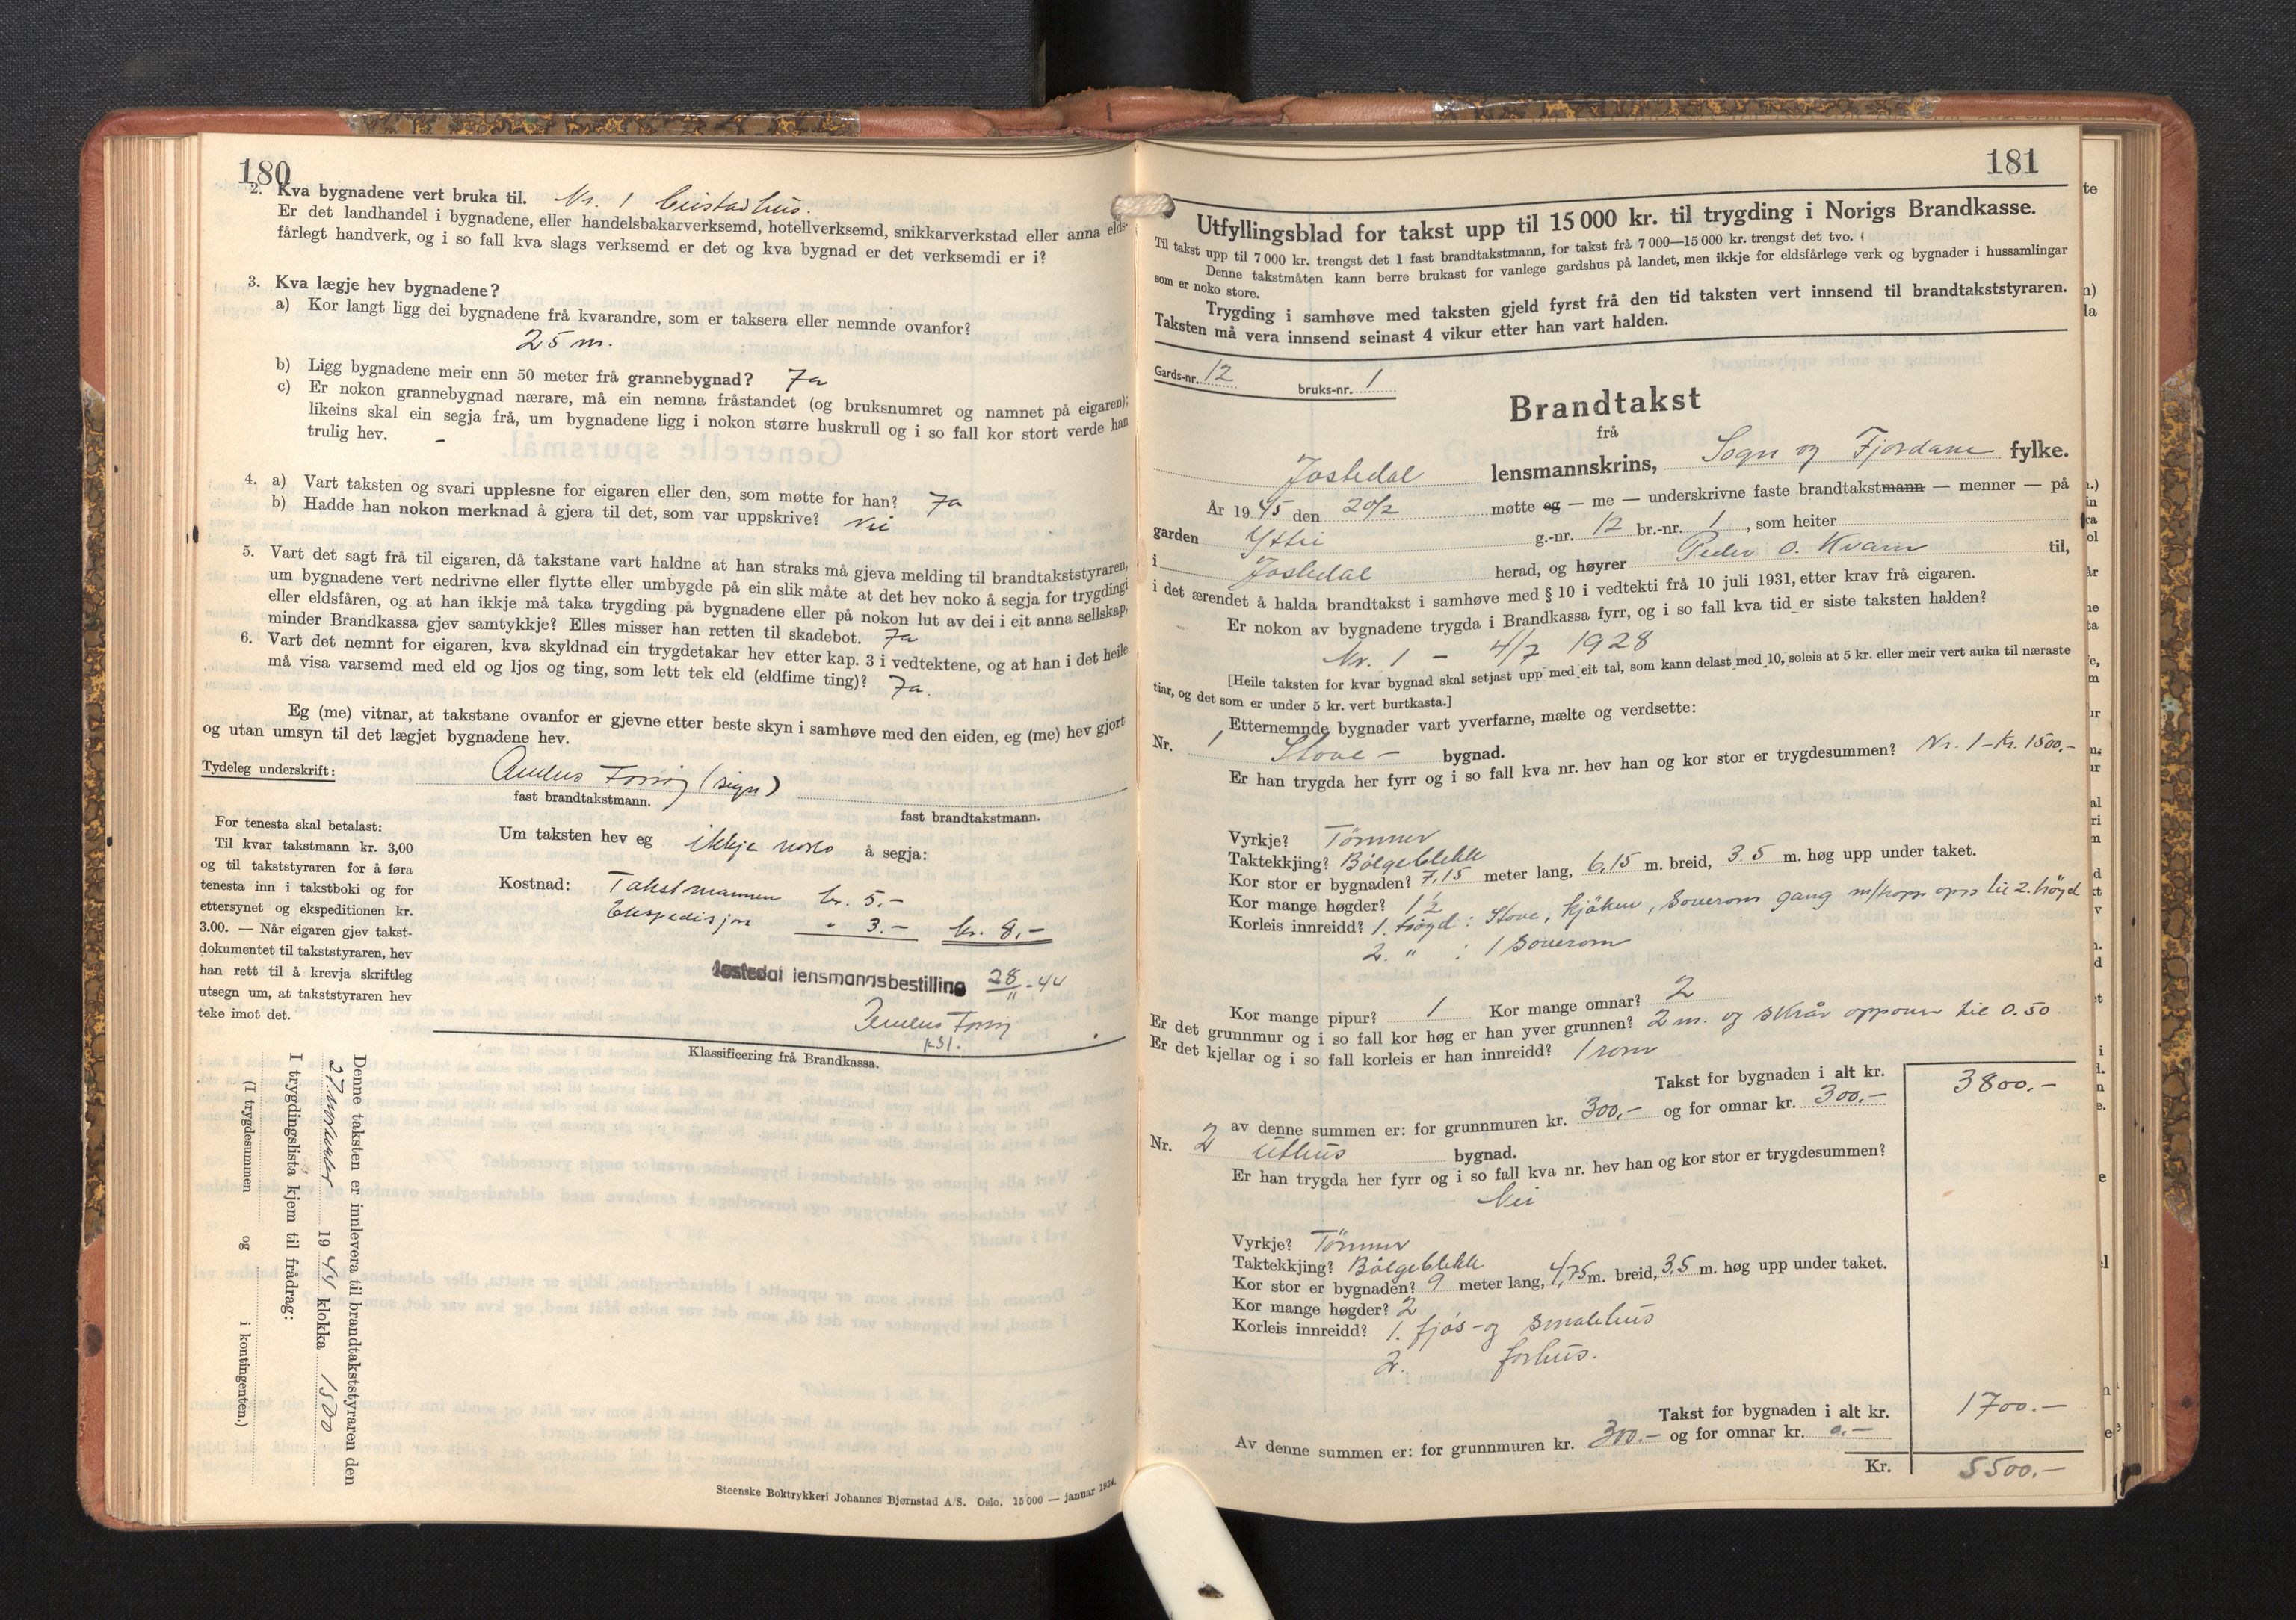 180
2. Kva bygnadene vert bruka til. Nr. 1
Er det landhandel i bygnadene, eller handelsbakarverksemd, hotellverksemd, snikkarverkstad eller anna elds-
fårlegt handverk, og i so fall kva slags verksemd er det og kva bygnad er det verksemdi er i?
3. Kva lægje hev bygnadene?
a) Kor langt ligg dei bygnadene frå kvarandre, som er taksera eller nemnde ovanfor?
25 m.
b) Ligg bygnadene meir enn 50 meter frå grannebygnad? Ja
c) Er nokon grannebygnad nærare, må ein nemna fråstandet (og bruksnumret og namnet på eigaren);
likeins skal ein segja frå, um bygnadene ligg i nokon større huskrull og i so fall kor stort verde han
trulig hev. -
4. a) Vart taksten og svari upplesne for eigaren eller den, som møtte for han? Ja
b) Hadde han nokon merknad å gjera til det, som var uppskrive? Nei
5. Vart det sagt frå til eigaren, då takstane vart haldne at han straks må gjeva melding til brandtakststyraren,
um bygnadene vert nedrivne eller flytte eller umbygde på ein slik måte at det hev noko å segja for trygdingi
eller eldsfåren, og at han ikkje må taka trygding på bygnadene eller på nokon lut av dei i eit anna sellskap,
minder Brandkassa gjev samtykkje? Elles misser han retten til skadebot. Ja
6. Vart det nemnt for eigaren, kva skyldnad ein trygdetakar hev etter kap. 3 i vedtektene, og at han i det heile
må visa varsemd med eld og ljos og ting, som lett tek eld (eldfime ting)? Ja.
Eg (me) vitnar, at takstane ovanfor er gjevne etter beste skyn i samhøve med den eiden, eg (me) hev gjort
og utan umsyn til det lægjet bygnadene hev.
Tydeleg underskrift: (sign)
fast brandtakstmann.
fast brandtakstmann.
For tenesta skal betalast:
Til kvar takstmann kr. 3,00
og til takststyraren for å føra
tenesta inn i takstboki og for
ettersynet og ekspeditionen kr.
3.00. — Når eigaren gjev takst-
dokumentet til takststyraren, hev
han rett til å krevja skriftleg
utsegn um, at takststyraren hev
teke imot det.
Um taksten hev eg ikkje noko å segja:
Kostnad: Takstmannen kr. 5.-
Ekspedisjon " 3.- kr. 8,-
Jostedal lensmannsbestilling 28/11-44
kst.
Klassificering frå Brandkassa.
Denne taksten er innlevera til brandtakststyraren den
27. november 1944 klokka 1500
I trygdingslista kjem til frådrag:
(I trygdesummen og i kontingenten.)
Steenske Boktrykkeri Johannes Bjørnstad A/S. Oslo. 15 000 — januar 1934.
181
Utfyllingsblad for takst upp til 15 000 kr. til trygding i Norigs Brandkasse.
Til takst upp til 7 000 kr. trengst det 1 fast brandtakstmann, for takst frå 7 000—15 000 kr. trengst det tvo.
Denne takstmåten kann berre brukast for vanlege gardshus på landet, men ikkje for eldsfårlege verk og bygnader i hussamlingar
som er noko store.
Trygding i samhøve med taksten gjeld fyrst frå den tid taksten vert innsend til brandtakststyraren.
Taksten må vera innsend seinast 4 vikur etter han vart halden.
Gards-nr. 12 bruks-nr. 1
Brandtakst
frå
Jostedal lensmannskrins, Sogn og Fjordane fylke.
År 1945 den 20/2 møtte eg — me — underskrivne faste brandtakstmann — menner — på
garden Yttri g.-nr. 12 br.-nr. 1, som heiter
i Jostedal herad, og høyrer Peder O. Kvam til,
i det ærendet å halda brandtakst i samhøve med § 10 i vedtekti frå 10 juli 1931, etter krav frå eigaren.
Er nokon av bygnadene trygda i Brandkassa fyrr, og i so fall kva tid er siste taksten halden?
Nr. 1 - 4/7 1928
[Heile taksten for kvar bygnad skal setjast upp med eit tal, som kann delast med 10, soleis at 5 kr. eller meir vert auka til næraste
tiar, og det som er under 5 kr. vert burtkasta.]
Etternemnde bygnader vart yverfarne, mælte og verdsette:
Nr. 1 Stove- bygnad.
Er han trygda her fyrr og i so fall kva nr. hev han og kor stor er trygdesummen? Nr. 1 - Kr. 1500,-
Vyrkje? Tömmer
Taktekkjing? Bölgeblekk
Kor stor er bygnaden? 7,15 meter lang, 6,15 m. breid, 3.5 m. høg upp under taket.
Kor mange høgder? 1½
Korleis innreidd? 1. högd: Stove, kjöken, soverom gang m/trapp opp til 2. högd
2. " : 1 soverom
Kor mange pipur? 1 Kor mange omnar? 2
Er det grunnmur og i so fall kor høg er han yver grunnen? 2 m. og skrår oppover til 0.50
Er det kjellar og i so fall korleis er han innreidd? 1 rom
Takst for bygnaden i alt kr. 3800.-
av denne summen er: for grunnmuren kr. 300,- og for omnar kr. 300.-
Nr. 2 Uthus bygnad.
Er han trygda her fyrr og i so fall kva nr. hev han og kor stor er trygdesummen?
Nei
Vyrkje? Tömmer
Taktekkjing? Bölgeblekk
Kor stor er bygnaden? 9 meter lang, 4,75 m. breid, 3,5 m. høg upp under taket.
Kor mange høgder? 2
Korleis innreidd? 1. fjös- og smalehus
2. forhus.
Takst for bygnaden i alt kr. 1700.-
Av denne summen er: for grunnmuren kr. 300.- og for omnar kr. 0.-
Kr. 5500.-